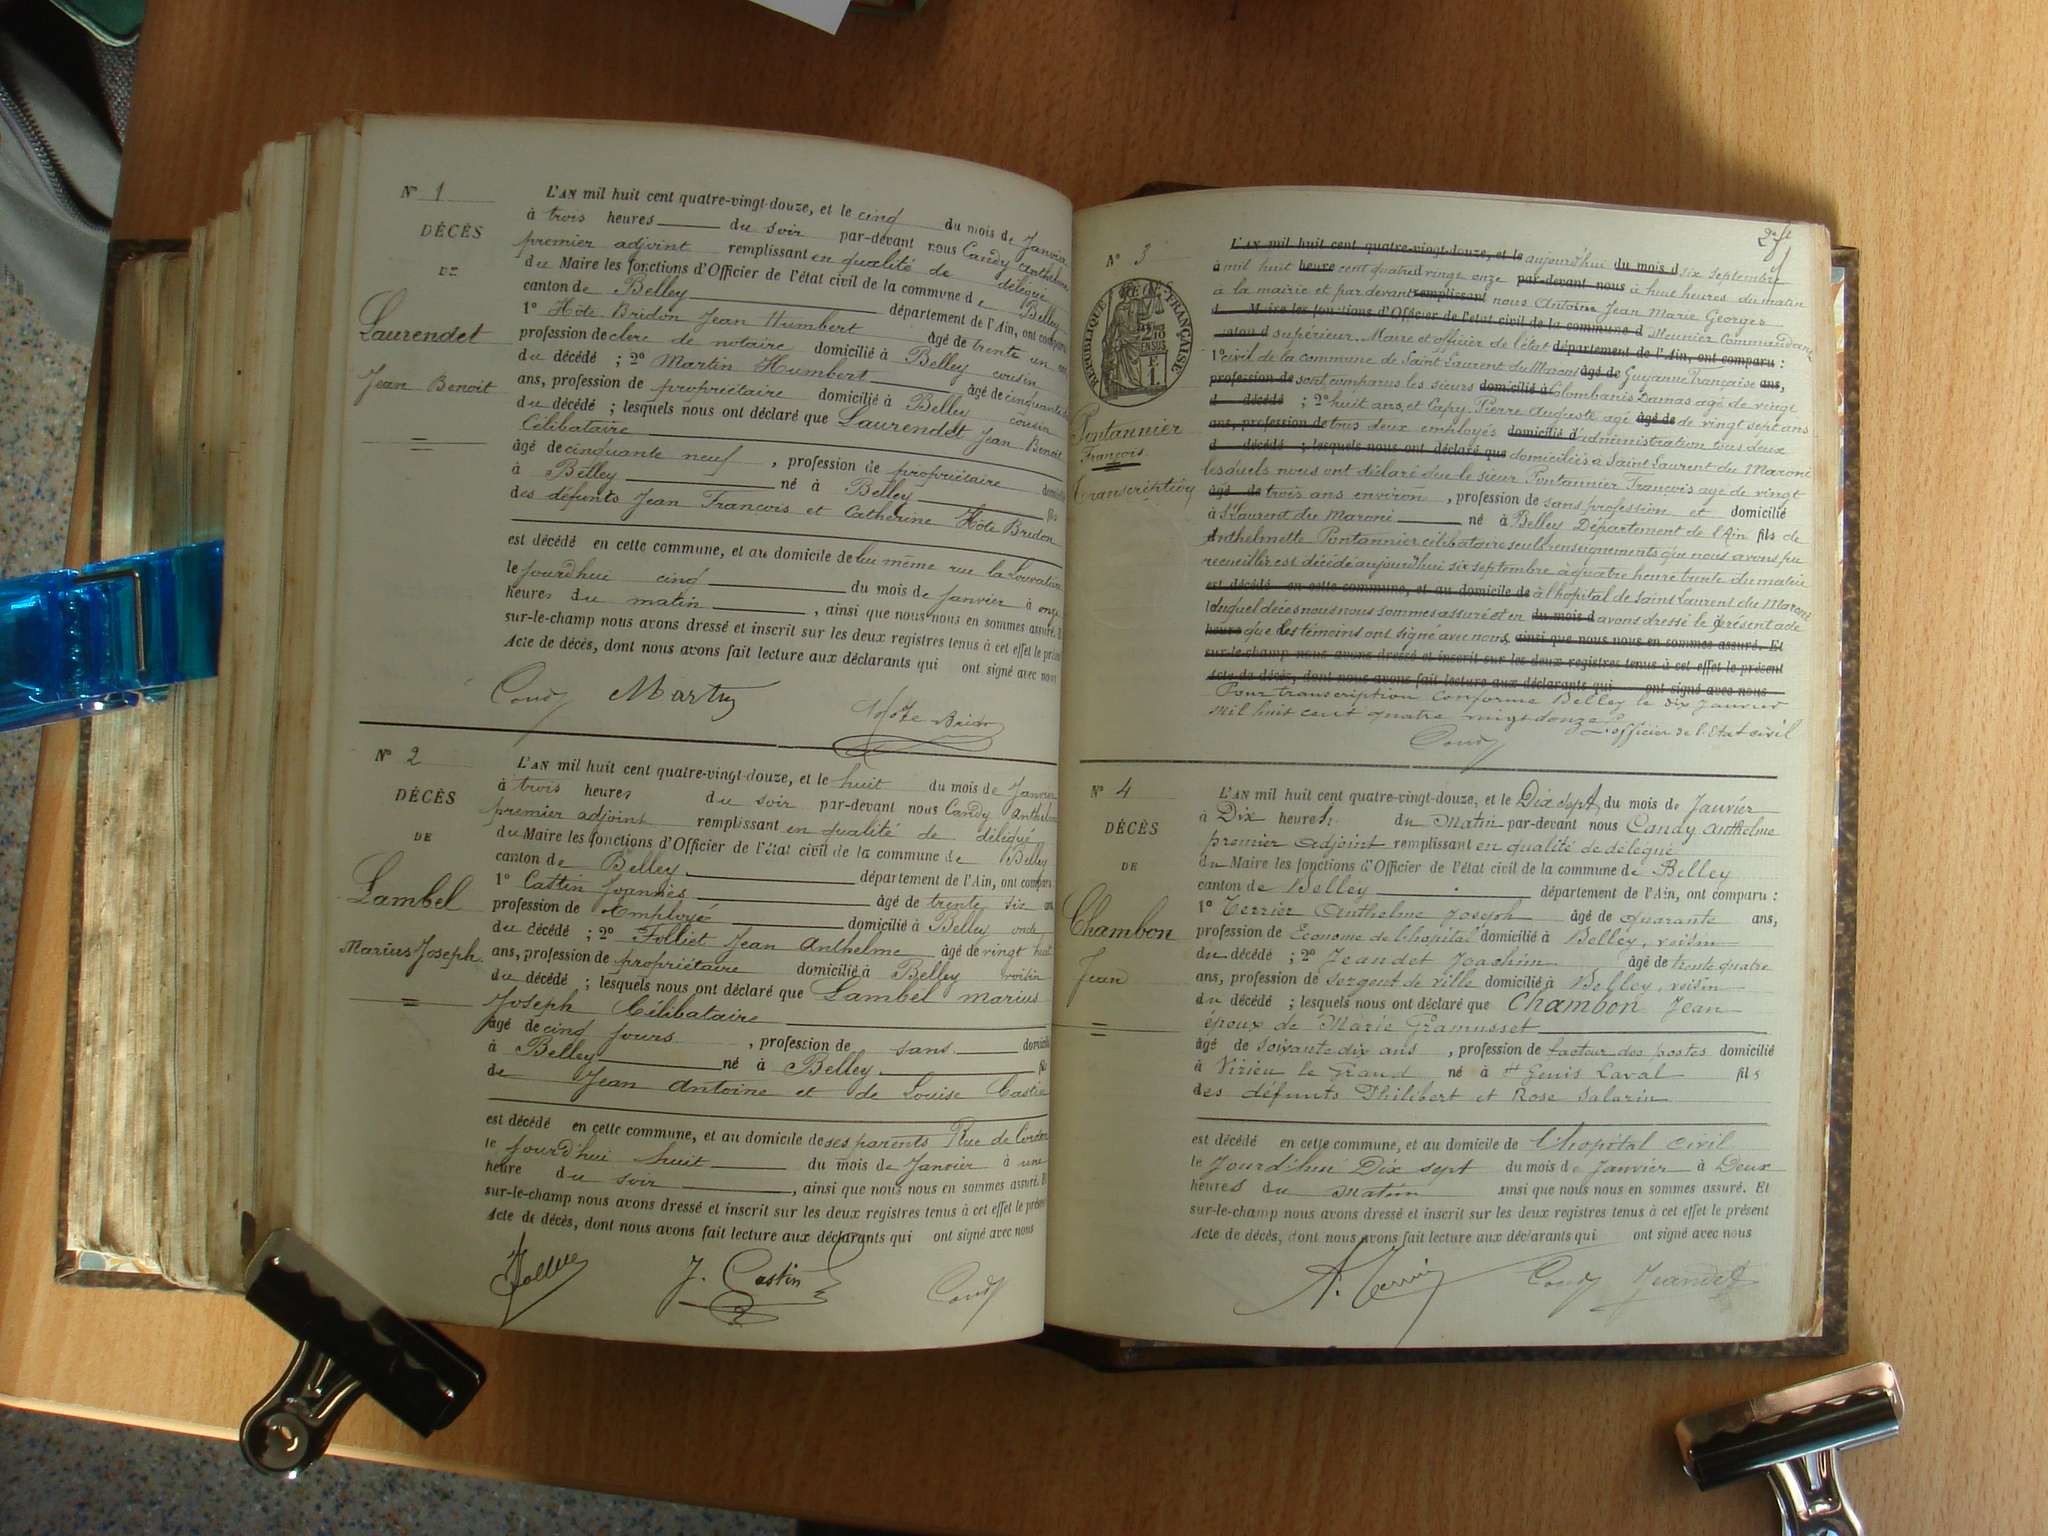 N° 1
DÉCÈS
DE
Laurendet
Jean Benoit
L'AN mil huit cent quatre-vingt-douze, et le cinq du mois de Janvier
à trois heures du soir par-devant nous Candy Anthelme
premier adjoint remplissant en qualité de délégué
du Maire les fonctions d'Officier de l'état civil de la commune de Belley
canton de Belley département de l'Ain, ont comparu
1° Hôte Bridon Jean Humbert âgé de trente un ans
profession de clerc de notaire domicilié à Belley cousin
du décédé ; 2° Martin Humbert âgé de cinquante
ans, profession de propriétaire domicilié à Belley cousin
du décédé ; lesquels nous ont déclaré que Laurendet Jean Benoit
Célibataire
âgé de cinquante neuf , profession de propriétaire domicilié
à Belley né à Belley fils
des défunts Jean François et Catherine Hôte Bridon
est décédé en cette commune, et au domicile de lui même rue la
le jourd'hui cinq du mois de Janvier à onze
heures du matin , ainsi que nous nous en sommes assuré. Et
sur-le-champ nous avons dressé et inscrit sur les deux registres tenus à cet effet le présent
Acte de décès, dont nous avons fait lecture aux déclarants qui ont signé avec nous
Candy Martin Hôte Bridon
N° 2
DÉCÈS
DE
Lambel
Marius Joseph
L'AN mil huit cent quatre-vingt-douze, et le huit du mois de Janvier
à trois heures du soir par-devant nous Candy Anthelme
premier adjoint remplissant en qualité de délégué
du Maire les fonctions d'Officier de l'état civil de la commune de Belley
canton de Belley département de l'Ain, ont comparu
1° Castin Joannès âgé de trente six ans
profession de Employé domicilié à Belley oncle
du décédé ; 2° Folliet Jean Anthelme âgé de vingt huit
ans, profession de propriétaire domicilié à Belley voisin
du décédé ; lesquels nous ont déclaré que Lambel Marius
Joseph Célibataire
âgé de cinq jours , profession de sans domicilié
à Belley né à Belley fils
de Jean Antoine et de Louise Castin
est décédé en cette commune, et au domicile de ses parents Rue de
le jourd'hui huit du mois de Janvier à une
heure du soir , ainsi que nous nous en sommes assuré. Et
sur-le-champ nous avons dressé et inscrit sur les deux registres tenus à cet effet le présent
Acte de décès, dont nous avons fait lecture aux déclarants qui ont signé avec nous
J. Castin Candy
N° 3
RÉPUBLIQUE FRANÇAISE
Pontannier
François
Transcription
L'AN mil huit cent quatre-vingt-douze, et le aujourd'hui du mois d six septembre
à mil huit heure cent quatre vingt onze par-devant nous à huit heures du matin
à la mairie et par devant remplissant nous Antoine Jean Marie Georges
d Maire les fonctions d'Officier de l'état civil de la commune d Meunier Commandant
canton d supérieur. Maire et officier de l'état département de l'Ain, ont comparu :
1° civil de la commune de Saint Laurent du Maroni âgé de Guyane Française ans,
profession de sont comparus les sieurs domicilié à Colombanis Damas agé de vingt
d décédé ; 2° huit ans, et Capy Pierre Auguste agé âgé de de vingt sept ans
ans, profession de tous deux employés domicilié à d'administration tous deux
d décédé ; lesquels nous ont déclaré que domiciliés à Saint Laurent du Maroni
lesquels nous ont déclaré que le sieur Pontannier François agé de vingt
âgé de trois ans environ , profession de sans profession et domicilié
à St Laurent du Maroni né à Belley Département de l'Ain fils de
Anthelmette Pontannier célibataire seuls renseignements que nous avons pu
recueillir est décédé aujourd'hui six septembre à quatre heure trente du matin
est décédé en cette commune, et au domicile de à l'hopital de Saint Laurent du Maroni
le duquel décés nous nous sommes assuré et en du mois d avons dressé le présent acte
heure que les témoins ont signé avec nous, ainsi que nous nous en sommes assuré. Et
sur-le-champ nous avons dressé et inscrit sur les deux registres tenus à cet effet le présent
Acte de décès, dont nous avons fait lecture aux déclarants qui ont signé avec nous
Pour transcription conforme Belley le dix Janvier
mil huit cent quatre vingt douze L'officier de l'Etat civil
Candy
N° 4
DÉCÈS
DE
Chambon
Jean
L'AN mil huit cent quatre-vingt-douze, et le Dix sept du mois de Janvier
à Dix heures du Matin par-devant nous Candy Anthelme
premier Adjoint remplissant en qualité de délégué
du Maire les fonctions d'Officier de l'état civil de la commune de Belley
canton de Belley département de l'Ain, ont comparu :
1° Terrier Anthelme Joseph âgé de quarante ans,
profession de Econome de l'hopital domicilié à Belley, voisin
du décédé ; 2° Jeandet Joachim âgé de trente quatre
ans, profession de sergent de ville domicilié à Belley, voisin
du décédé ; lesquels nous ont déclaré que Chambon Jean
époux de Marie Gramusset
âgé de soixante dix ans , profession de facteur des postes domicilié
à Virieu le Grand né à St Genis Laval fils
des défunts Philibert et Rose Salarin
est décédé en cette commune, et au domicile de l'hopital civil
le Jourd'hui Dix sept du mois de Janvier à Deux
heures du Matin ainsi que nous nous en sommes assuré. Et
sur-le-champ nous avons dressé et inscrit sur les deux registres tenus à cet effet le présent
Acte de décès, dont nous avons fait lecture aux déclarants qui ont signé avec nous
A. Terrier Candy Jeandet